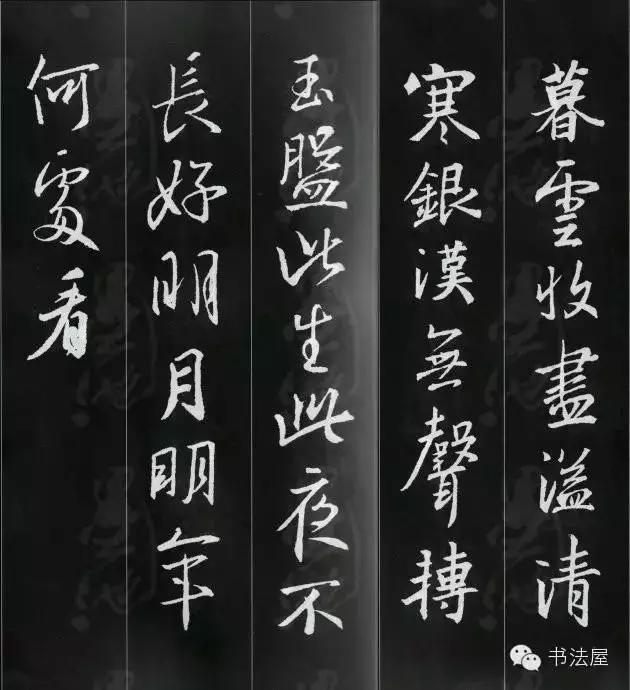 暮雲收盡溢清
寒銀漢無聲轉
玉盤此生此夜不
長好明月明年
何處看
书法屋